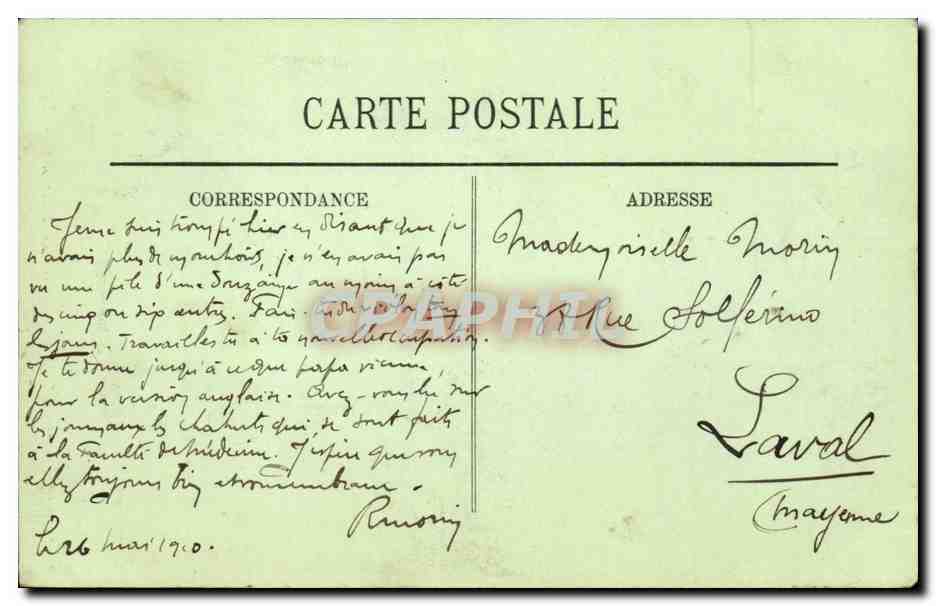 CARTE POSTALE
CORRESPONDANCE
Je me suis trompé hier en disant que je
n'avais plus de mouchoirs, je n'en avais pas
vu une pile d'une douzaine au moins à côté
des cinq ou six autres. Fais-tu du violon tous
les jours. Travailles tu à ta nouvelle occupation.
Je te donne jusqu'à ce que papa vienne,
pour la version anglaise. Avez-vous lu sur
les journaux les chahuts qui se sont faits
à la Faculté de Médecine. J'espère que vous
allez toujours bien
Rmorin
Le 26 mai 1910.
ADRESSE
Mademoiselle Morin
Rue Solférino
Laval
Mayenne
CPAPHIL